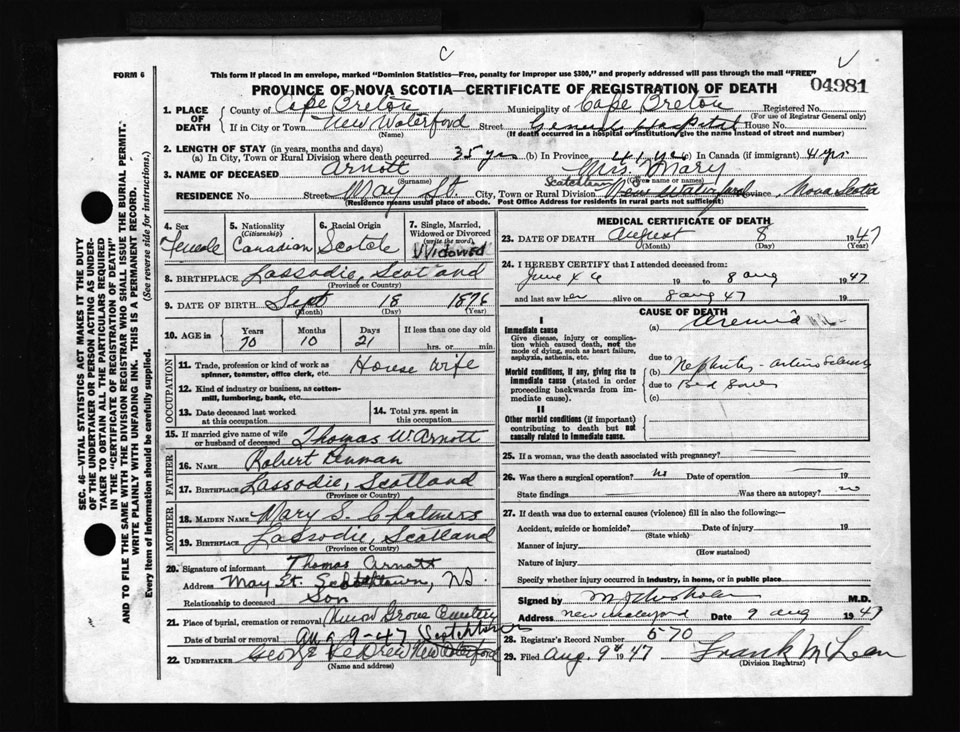 C
FORM 6
This form if placed in an envelope, marked "Dominion Statistics—Free, penalty for improper use $300," and properly addressed will pass through the mail "FREE"
04981
PROVINCE OF NOVA SCOTIA—CERTIFICATE OF REGISTRATION OF DEATH
1. PLACE OF DEATH County of Cape Breton Municipality of Cape Breton Registered No.
(For use of Registrar General only)
If in City or Town New Waterford Street General Hospital House No.
(Name) (If death occurred in a hospital or institution, give the name instead of street and number)
2. LENGTH OF STAY (in years, months and days)
(a) In City, Town or Rural Division where death occurred 35 yrs (b) In Province 41 yrs (c) In Canada (if immigrant) 41 yrs
3. NAME OF DECEASED Arnott Mrs. Mary
(Surname) (Given name or names)
RESIDENCE No. Street May St City, Town or Rural Division New Waterford Province Nova Scotia
(Residence means usual place of abode. Post Office Address for residents in rural parts not sufficient)
4. Sex Female
5. Nationality (Citizenship) Canadian
6. Racial Origin Scotch
7. Single, Married, Widowed or Divorced (write the word) Widowed
8. BIRTHPLACE Lassodie, Scotland
(Province or Country)
9. DATE OF BIRTH Sept 18 1876
(Month) (Day) (Year)
10. AGE in Years Months Days If less than one day old
70 10 21 hrs. or min.
OCCUPATION
11. Trade, profession or kind of work as spinner, teamster, office clerk, etc. House wife
12. Kind of industry or business, as cotton-mill, lumbering, bank, etc.
13. Date deceased last worked at this occupation
14. Total yrs. spent in this occupation
15. If married give name of wife or husband of deceased Thomas W. Arnott
FATHER
16. Name Robert Denman
17. Birthplace Lassodie, Scotland
(Province or Country)
MOTHER
18. Maiden Name Mary S. Chalmers
19. Birthplace Lassodie, Scotland
(Province or Country)
20. Signature of informant Thomas Arnott
Address May St. Scotchtown, N.S.
Relationship to deceased Son
21. Place of burial, cremation or removal Union Grove Cemetery
Date of burial or removal Aug 9-47 Scotchtown
22. UNDERTAKER George New Waterford
(Name and address)
MEDICAL CERTIFICATE OF DEATH
23. DATE OF DEATH August 8 1947
(Month) (Day) (Year)
24. I HEREBY CERTIFY that I attended deceased from:
June 19 to 8 aug 1947
and last saw her alive on 8 aug 47 19
CAUSE OF DEATH
I
Immediate cause
Give disease, injury or complication which caused death, not the mode of dying, such as heart failure, asphyxia, asthenia, etc.
(a) Uremia
due to
Morbid conditions, if any, giving rise to immediate cause (stated in order proceeding backwards from immediate cause).
(b) Nephritis -
due to Bed Sores
(c)
II
Other morbid conditions (if important) contributing to death but not causally related to immediate cause.
25. If a woman, was the death associated with pregnancy?
26. Was there a surgical operation? no Date of operation 19
State findings Was there an autopsy? no
27. If death was due to external causes (violence) fill in also the following:
Accident, suicide or homicide? Date of injury 19
(State which)
Manner of injury
(How sustained)
Nature of injury
Specify whether injury occurred in industry, in home, or in public place
Signed by M.D.
Address New Waterford Date 9 aug 1947
28. Registrar's Record Number 570
29. Filed Aug. 9th 1947 Frank McLean
(Division Registrar)
SEC. 46—VITAL STATISTICS ACT MAKES IT THE DUTY
OF THE UNDERTAKER OR PERSON ACTING AS UNDERTAKER TO OBTAIN ALL THE PARTICULARS REQUIRED
IN THE "CERTIFICATE OF REGISTRATION OF DEATH"
AND TO FILE THE SAME WITH THE DIVISION REGISTRAR WHO SHALL ISSUE THE BURIAL PERMIT.
WRITE PLAINLY WITH UNFADING INK. THIS IS A PERMANENT RECORD.
Every item of information should be carefully supplied. (See reverse side for instructions.)